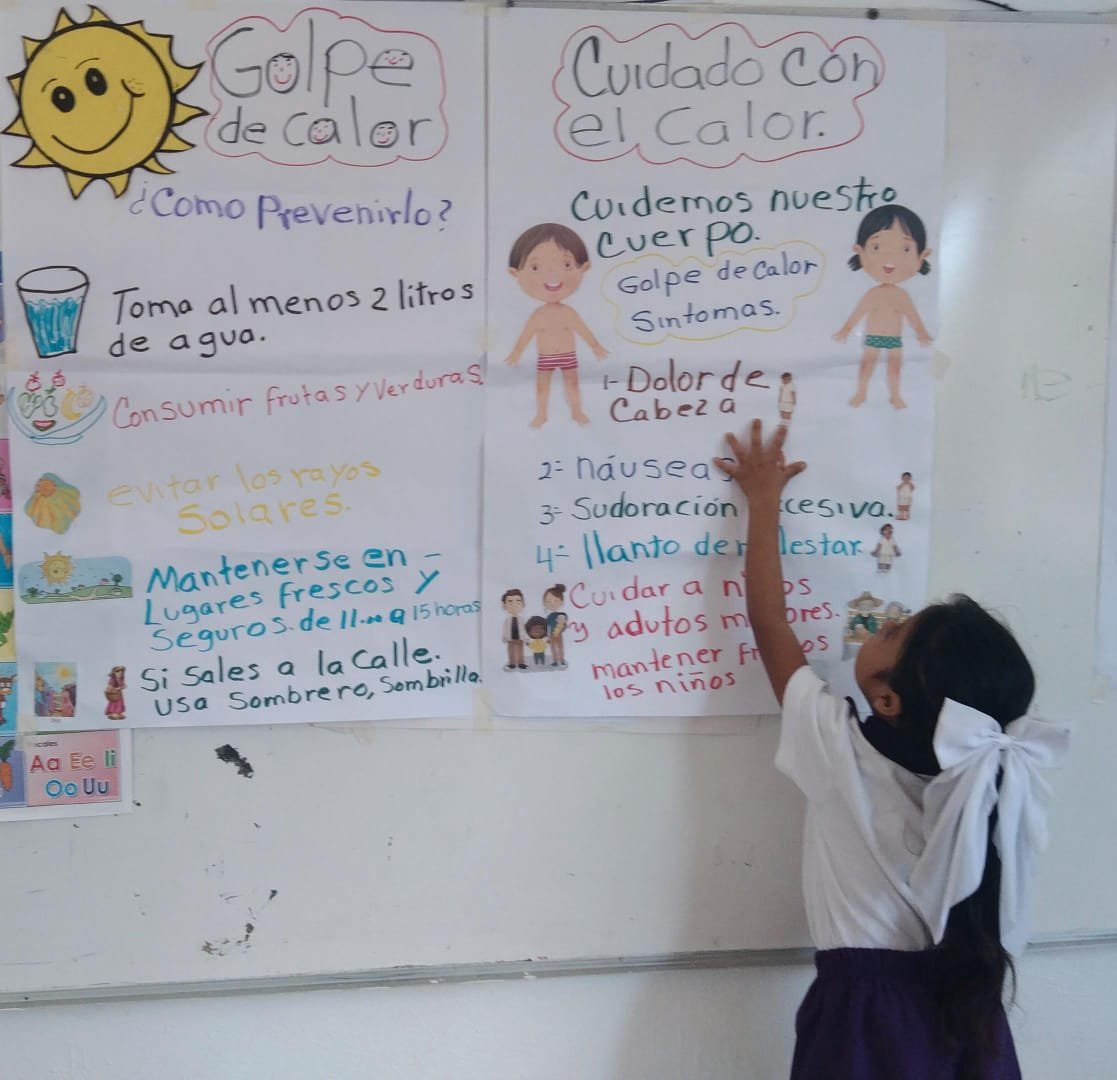 Golpe
de calor
¿Como Prevenirlo?
Toma al menos 2 litros
de agua.
Consumir frutas y Verduras.
evitar los rayos
Solares.
Mantenerse en -
Lugares frescos y
Seguros. de 11 a 15 horas
Si Sales a la Calle.
Usa Sombrero, Sombrilla.
Aa Ee Ii
Oo Uu
Cuidado con
el Calor.
Cuidemos nuestro
Cuerpo.
Golpe de calor
Sintomas.
1- Dolor de
Cabeza
2= náuseas
3= Sudoración cesiva.
4= llanto de lestar
Cuidar a n os
y adutos m ores.
mantener fr os
los niños